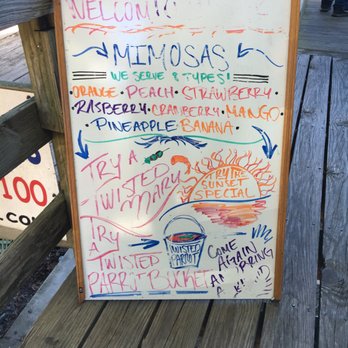 WELCOME!
MIMOSAS
WE SERVE 8 TYPES!
ORANGE • PEACH • STRAWBERRY
• RASBERRY • CRANBERRY • MANGO
• PINEAPPLE BANANA •
TRY A
TWISTED
MARY
TRY THE
SUNSET
SPECIAL
TRY
A
TWISTED
PARROT BUCKET
TWISTED
PARROT
COME
AGAIN
BRING
100